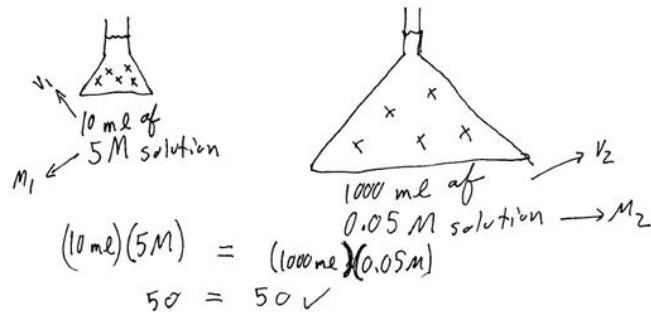 V1
10 ml of
5M solution
M1
V2
1000 ml of
0.05 M solution → M2
(10 ml)(5M) = (1000 ml)(0.05M)
50 = 50 ✓